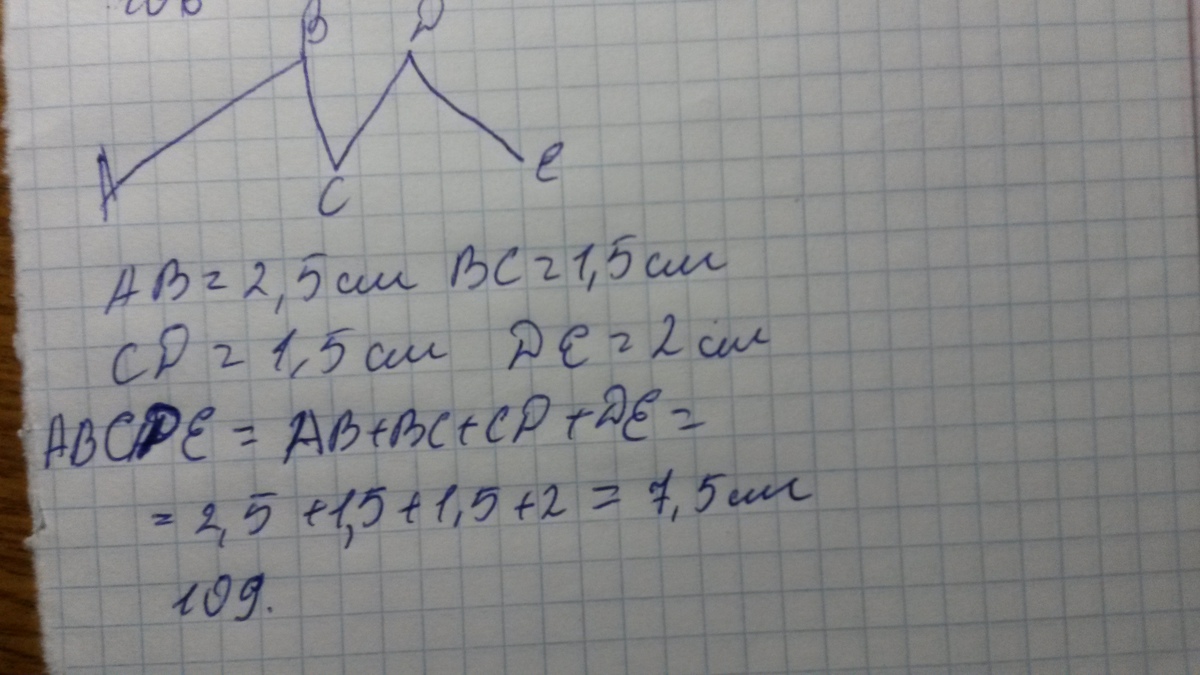 B D
A C E
AB = 2,5 см BC = 1,5 см
CD = 1,5 см DE = 2 см
ABCDE = AB+BC+CD+DE =
= 2,5 +1,5+1,5+2 = 7,5 см
109.